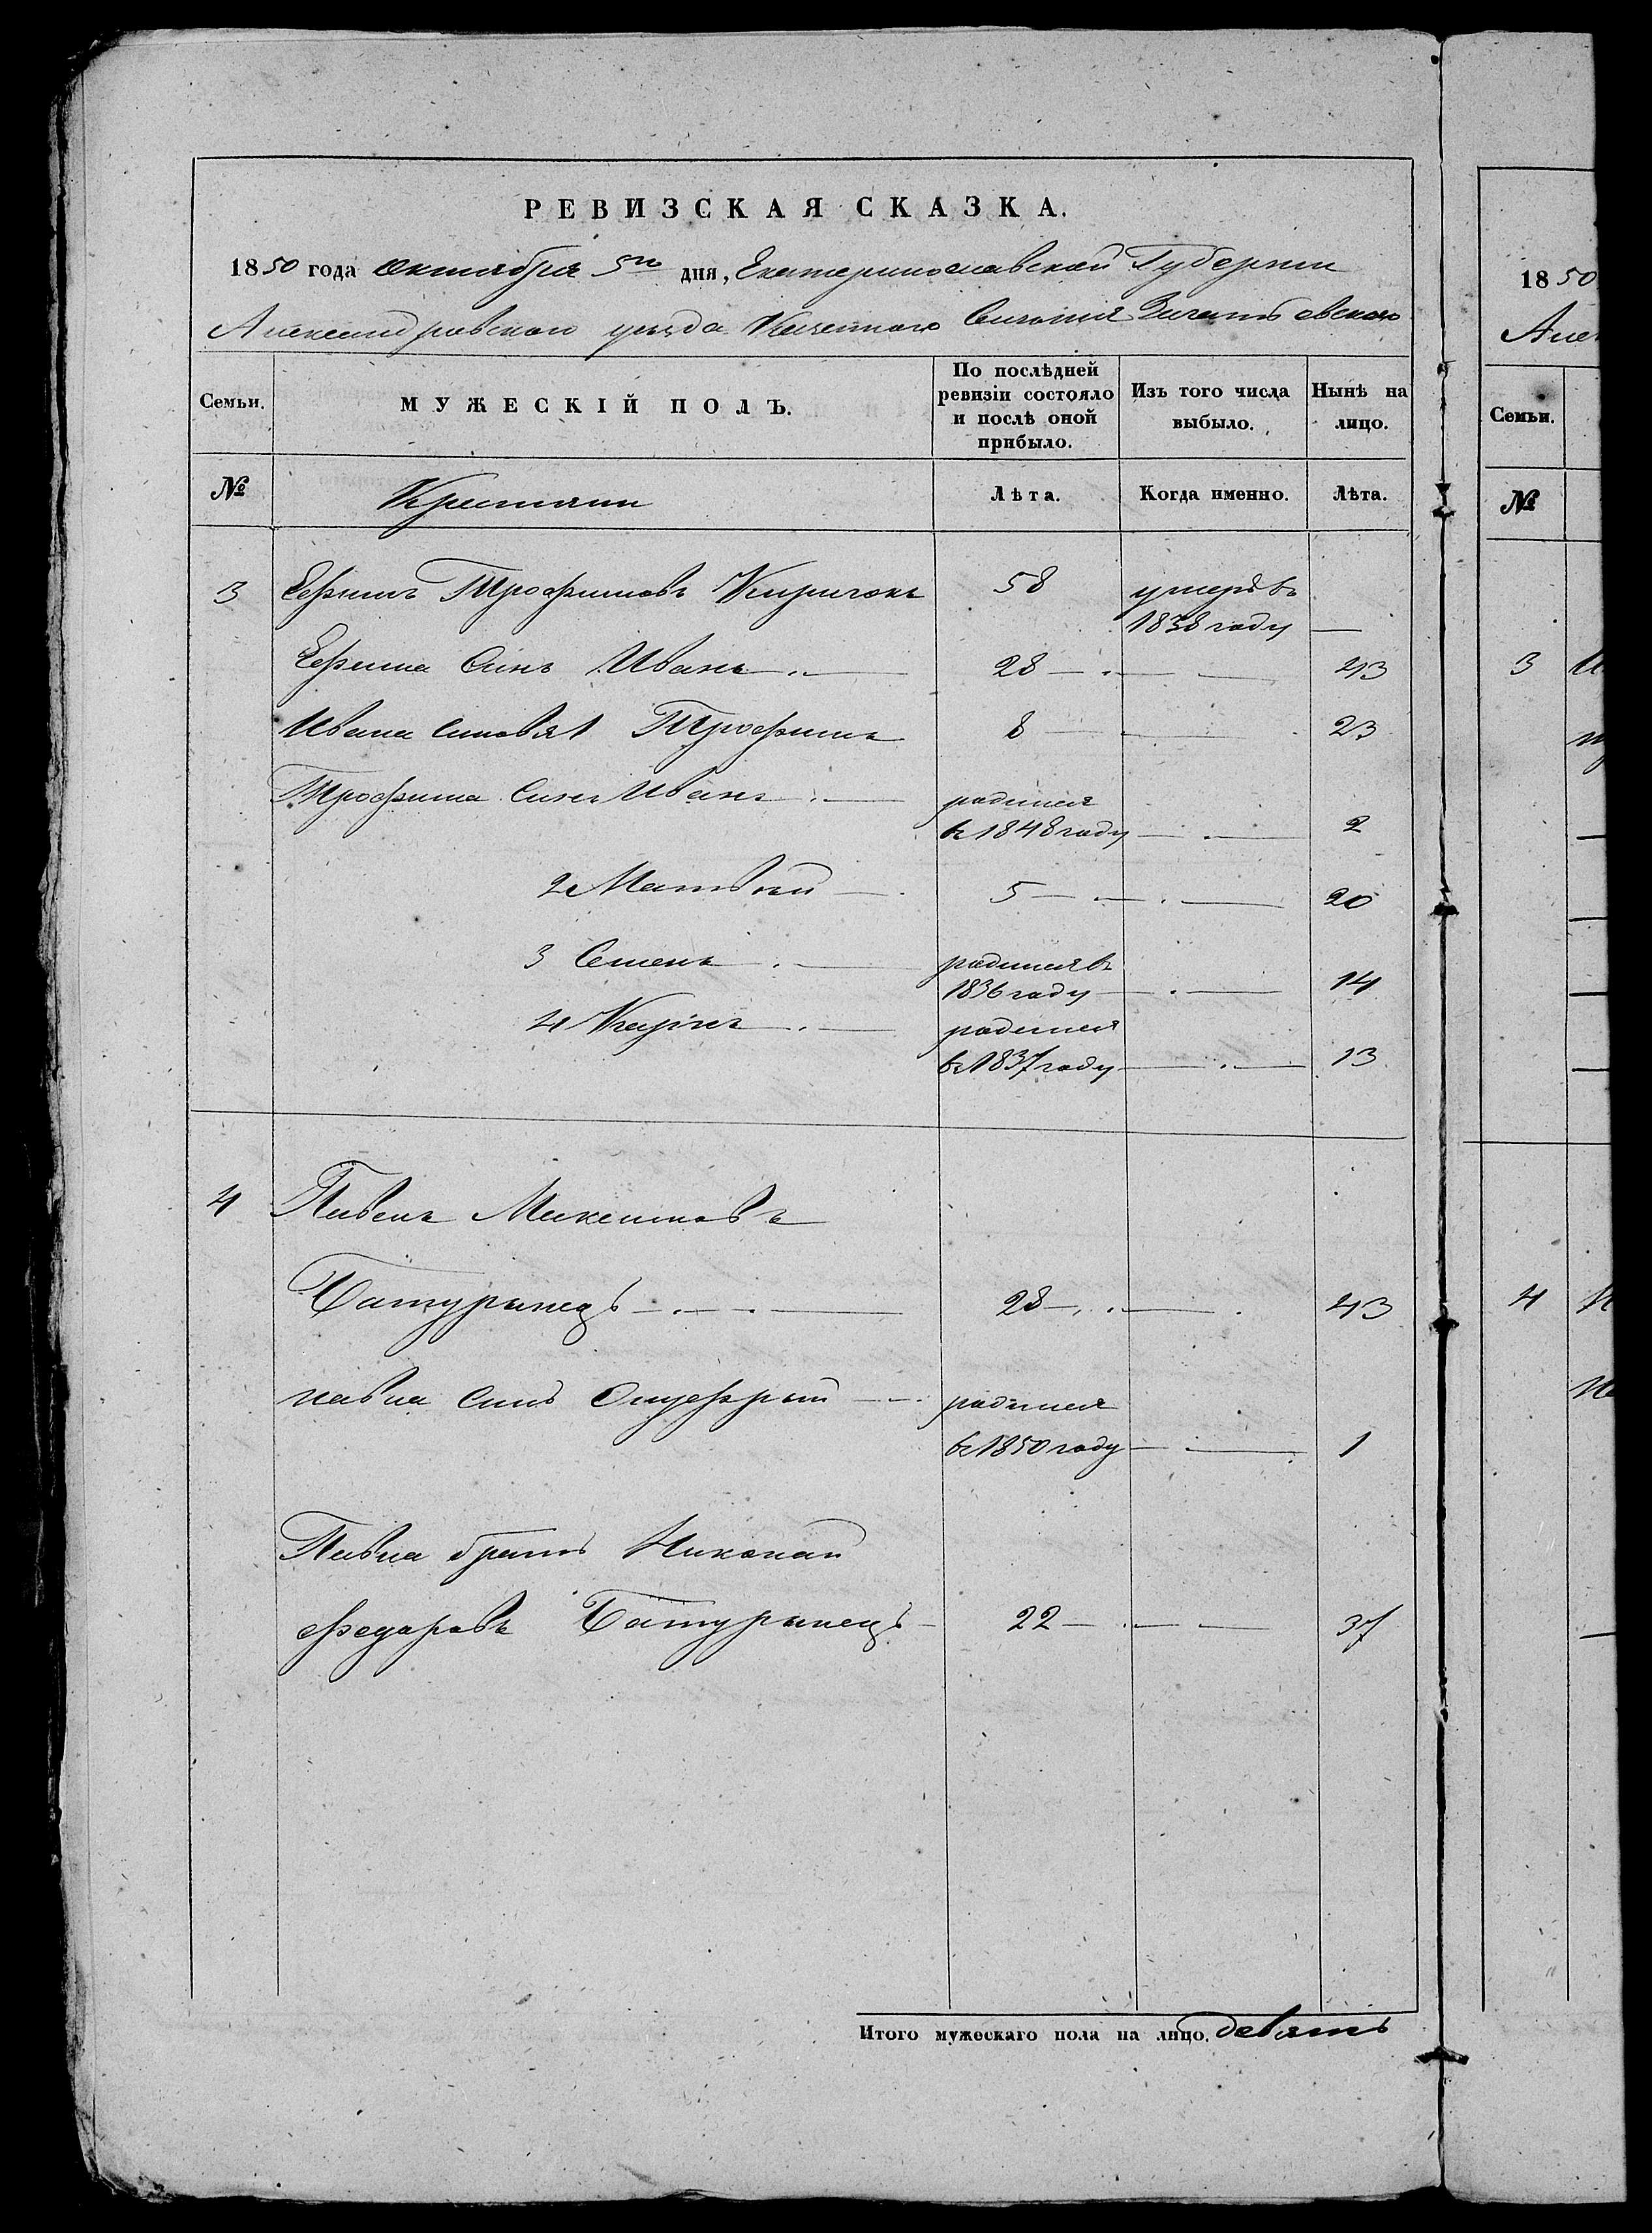 РЕВИЗСКАЯ СКАЗКА.
1850 года Октября 5го дня, Екатеринославской Губернии
Александровскаго уезда Казенного Селения
Семьи. МУЖЕСКІЙ ПОЛЪ. По послѣдней ревизіи состояло и послѣ оной прибыло. Изъ того числа выбыло. Нынѣ на лицо.
№ Крестьяни Лѣта. Когда именно. Лѣта.
3 Ефимъ Трофимовъ Киричокъ 58 умеръ въ
1838 году —
Ефима Синъ Иванъ 28 43
Ивана Синовя 1 Трофимъ 8 23
Трофима Синъ Иванъ родился
въ 1848 году 2
2 Матвѣй 5 20
3 Семенъ родился въ
1836 году 14
4 родился
въ 1837 году 13
4 Павелъ Максимовъ
Батурынецъ 28 43
павла Синъ Онуфрый родился
въ 1850 году 1
Павла братъ Николай
Федоровъ Батурынецъ 22 37
Итого мужескаго пола на лицо. девять
1850
Але
Семьи.
№
3
4